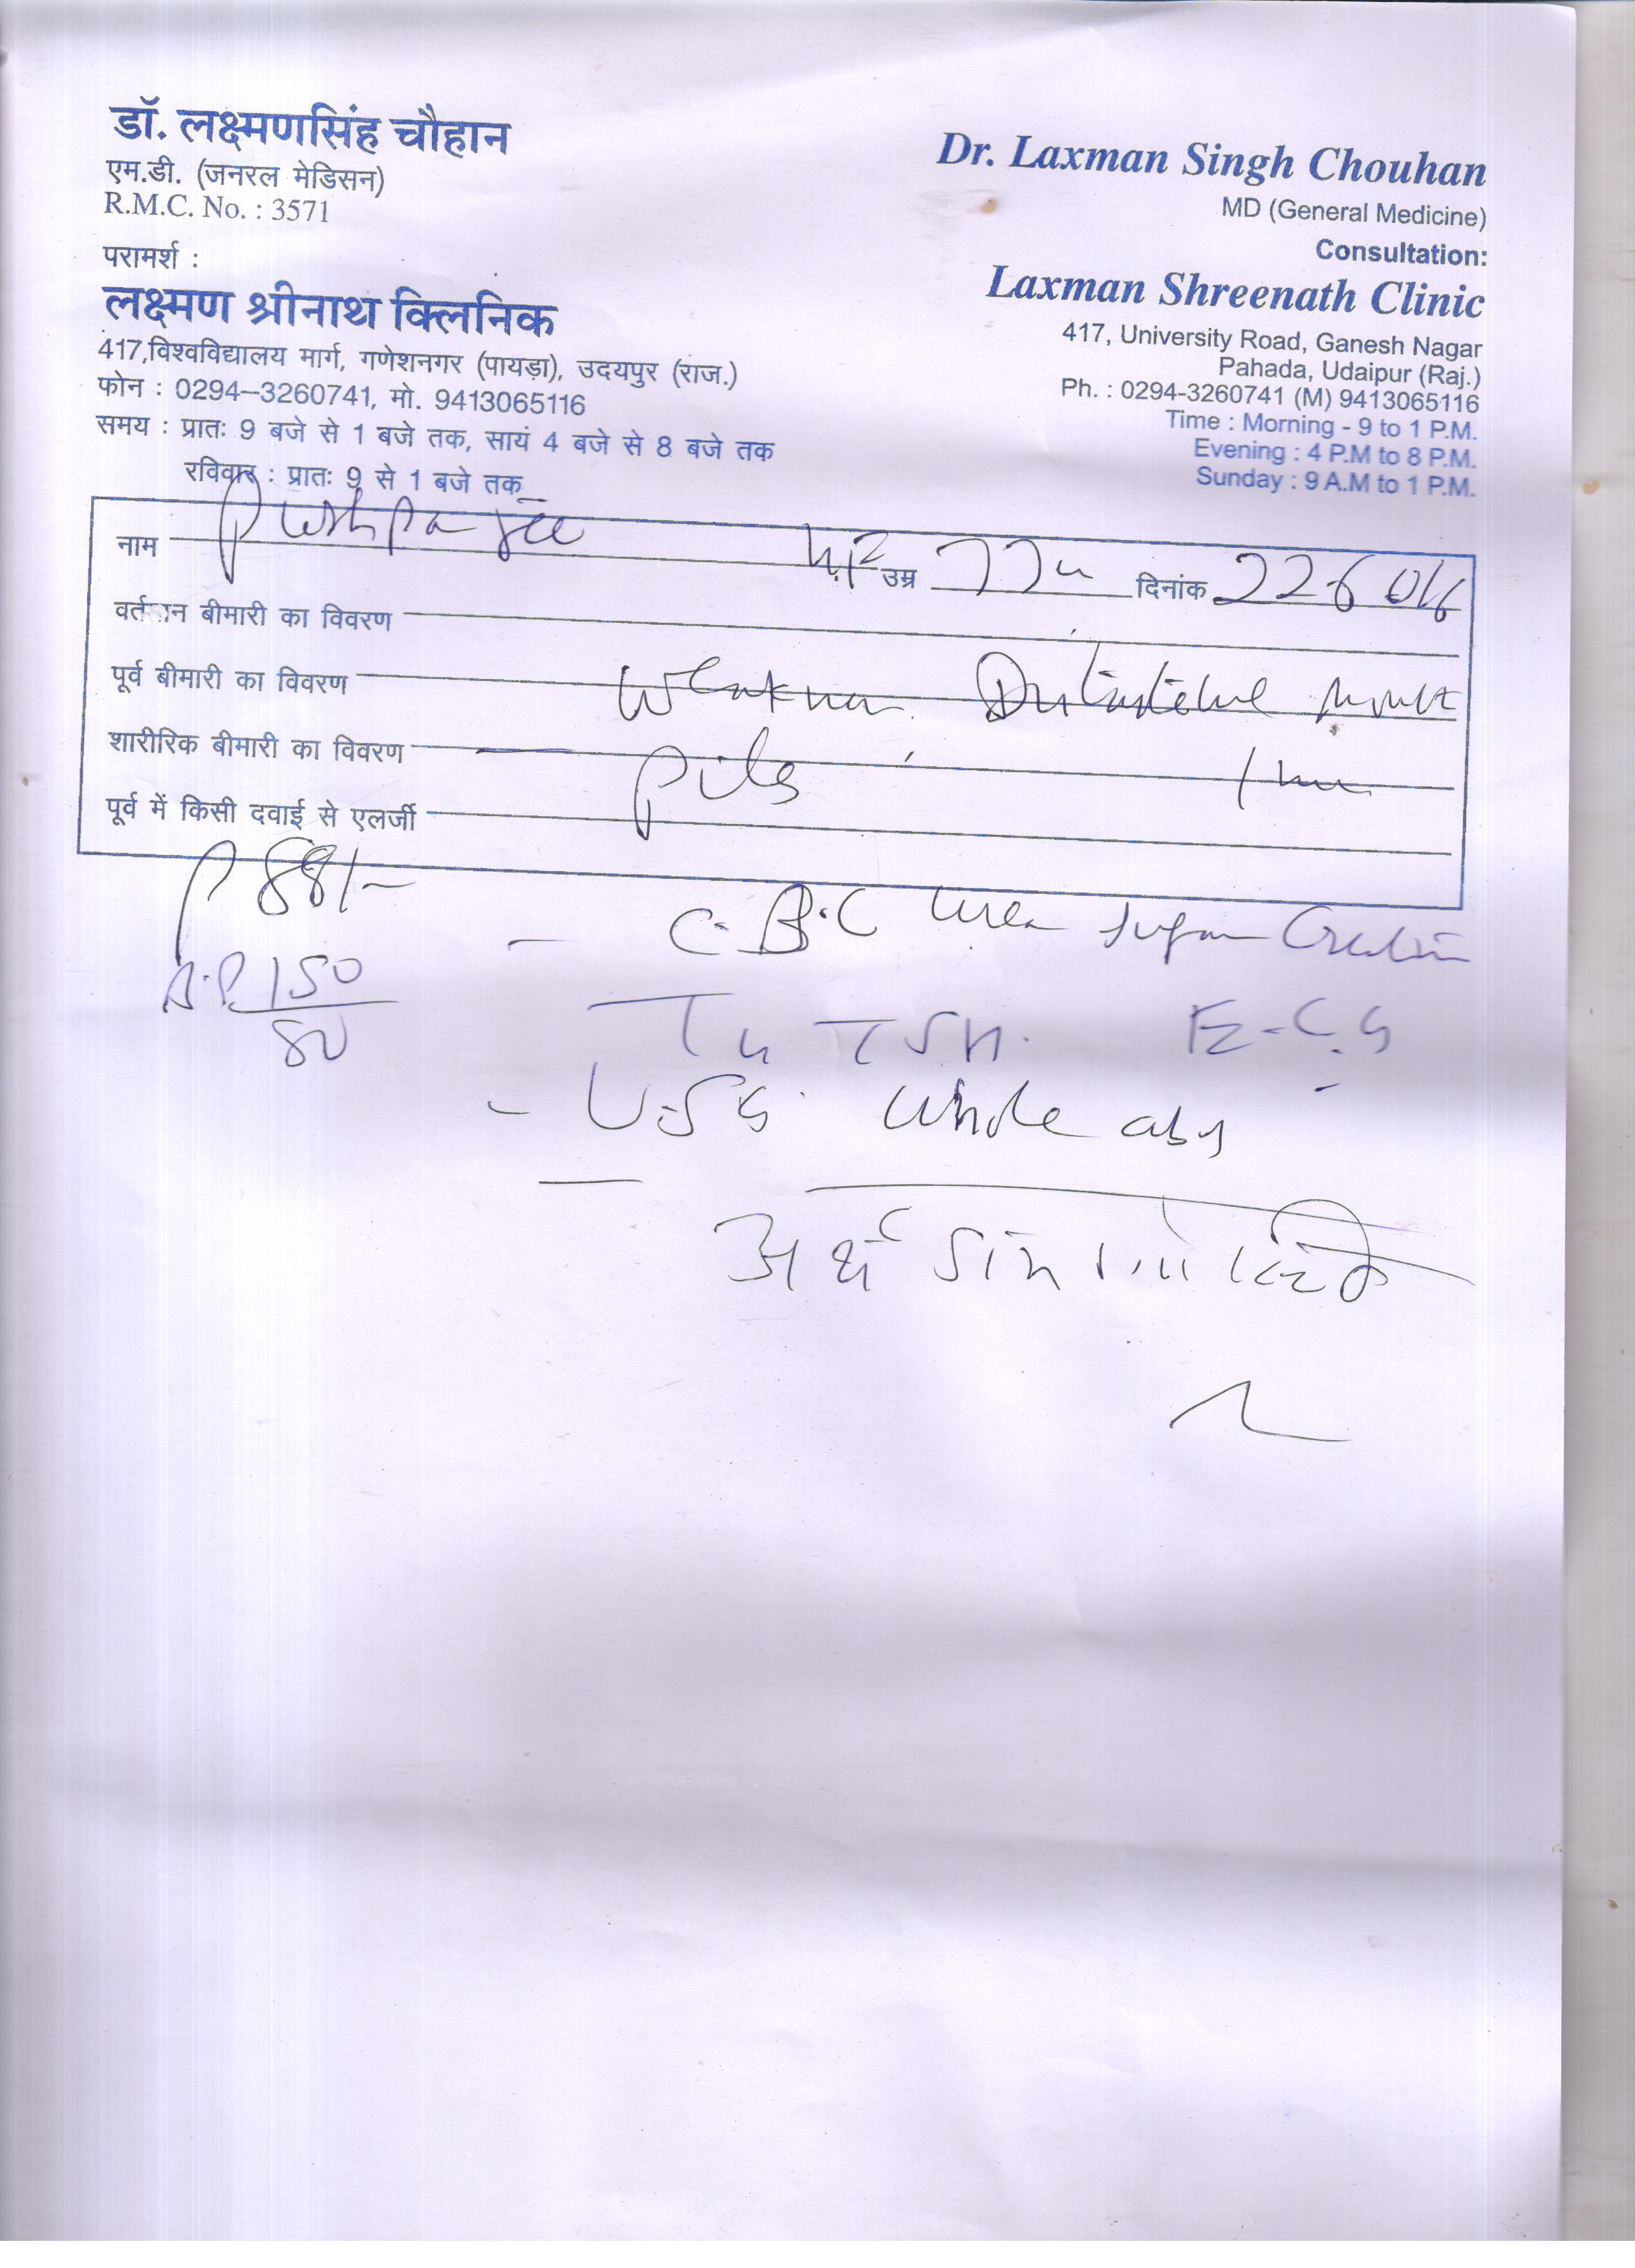 डॉ. लक्ष्मणसिंह चौहान
एम.डी. (जनरल मेडिसन)
R.M.C. No. : 3571
परामर्श :
लक्ष्मण श्रीनाथ क्लिनिक
417,विश्वविद्यालय मार्ग, गणेशनगर (पायड़ा), उदयपुर (राज.)
फोन : 0294–3260741, मो. 9413065116
समय : प्रातः 9 बजे से 1 बजे तक, सायं 4 बजे से 8 बजे तक
रविवार : प्रातः 9 से 1 बजे तक
Dr. Laxman Singh Chouhan
MD (General Medicine)
Consultation:
Laxman Shreenath Clinic
417, University Road, Ganesh Nagar
Pahada, Udaipur (Raj.)
Ph. : 0294-3260741 (M) 9413065116
Time : Morning - 9 to 1 P.M.
Evening : 4 P.M to 8 P.M.
Sunday : 9 A.M to 1 P.M.
नाम Pushpa उम्र 77 दिनांक
वर्तमान बीमारी का विवरण
पूर्व बीमारी का विवरण
शारीरिक बीमारी का विवरण Piles
पूर्व में किसी दवाई से एलर्जी
P 88/-
C.B.C Urea Sugar
B.P. 150
80
TSH. E.C.G
- U.S.G. Whole abd